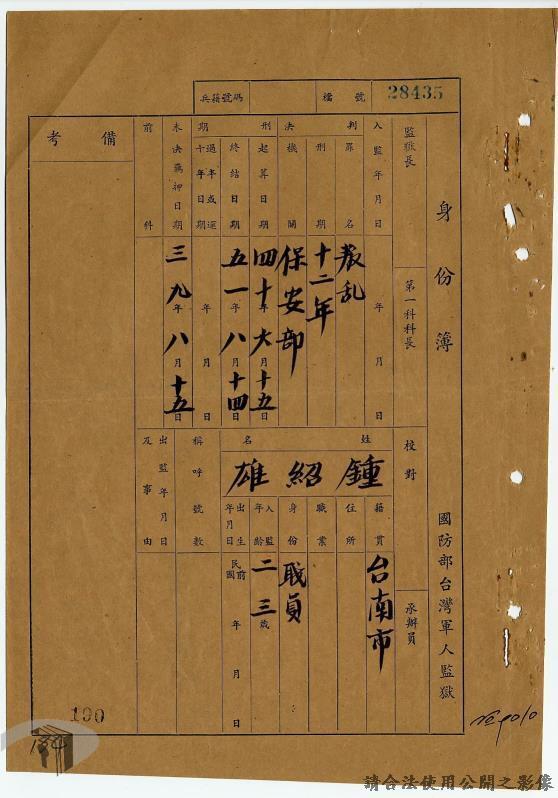 兵籍號碼
檔號 28435
身份簿
國防部台灣軍人監獄
監獄長
第一科科長
校對
承辦員
入監年月日 年 月 日
判決
罪名 叛乱
刑期 十二年
機關 保安部
刑期
起算日期 四十年六月十五日
終結日期 五一年八月十四日
過年或逕十年日期 年 月 日
未決羈押日期 三九年八月十五日
前科
備考
姓名 鍾紹雄
籍貫 台南市
住所
職業
身份 職員
入監年齡 二三歲
出生年月日 民前國 年 月 日
稱呼號數
出監年月日及事由
190
184
請合法使用公開之影像